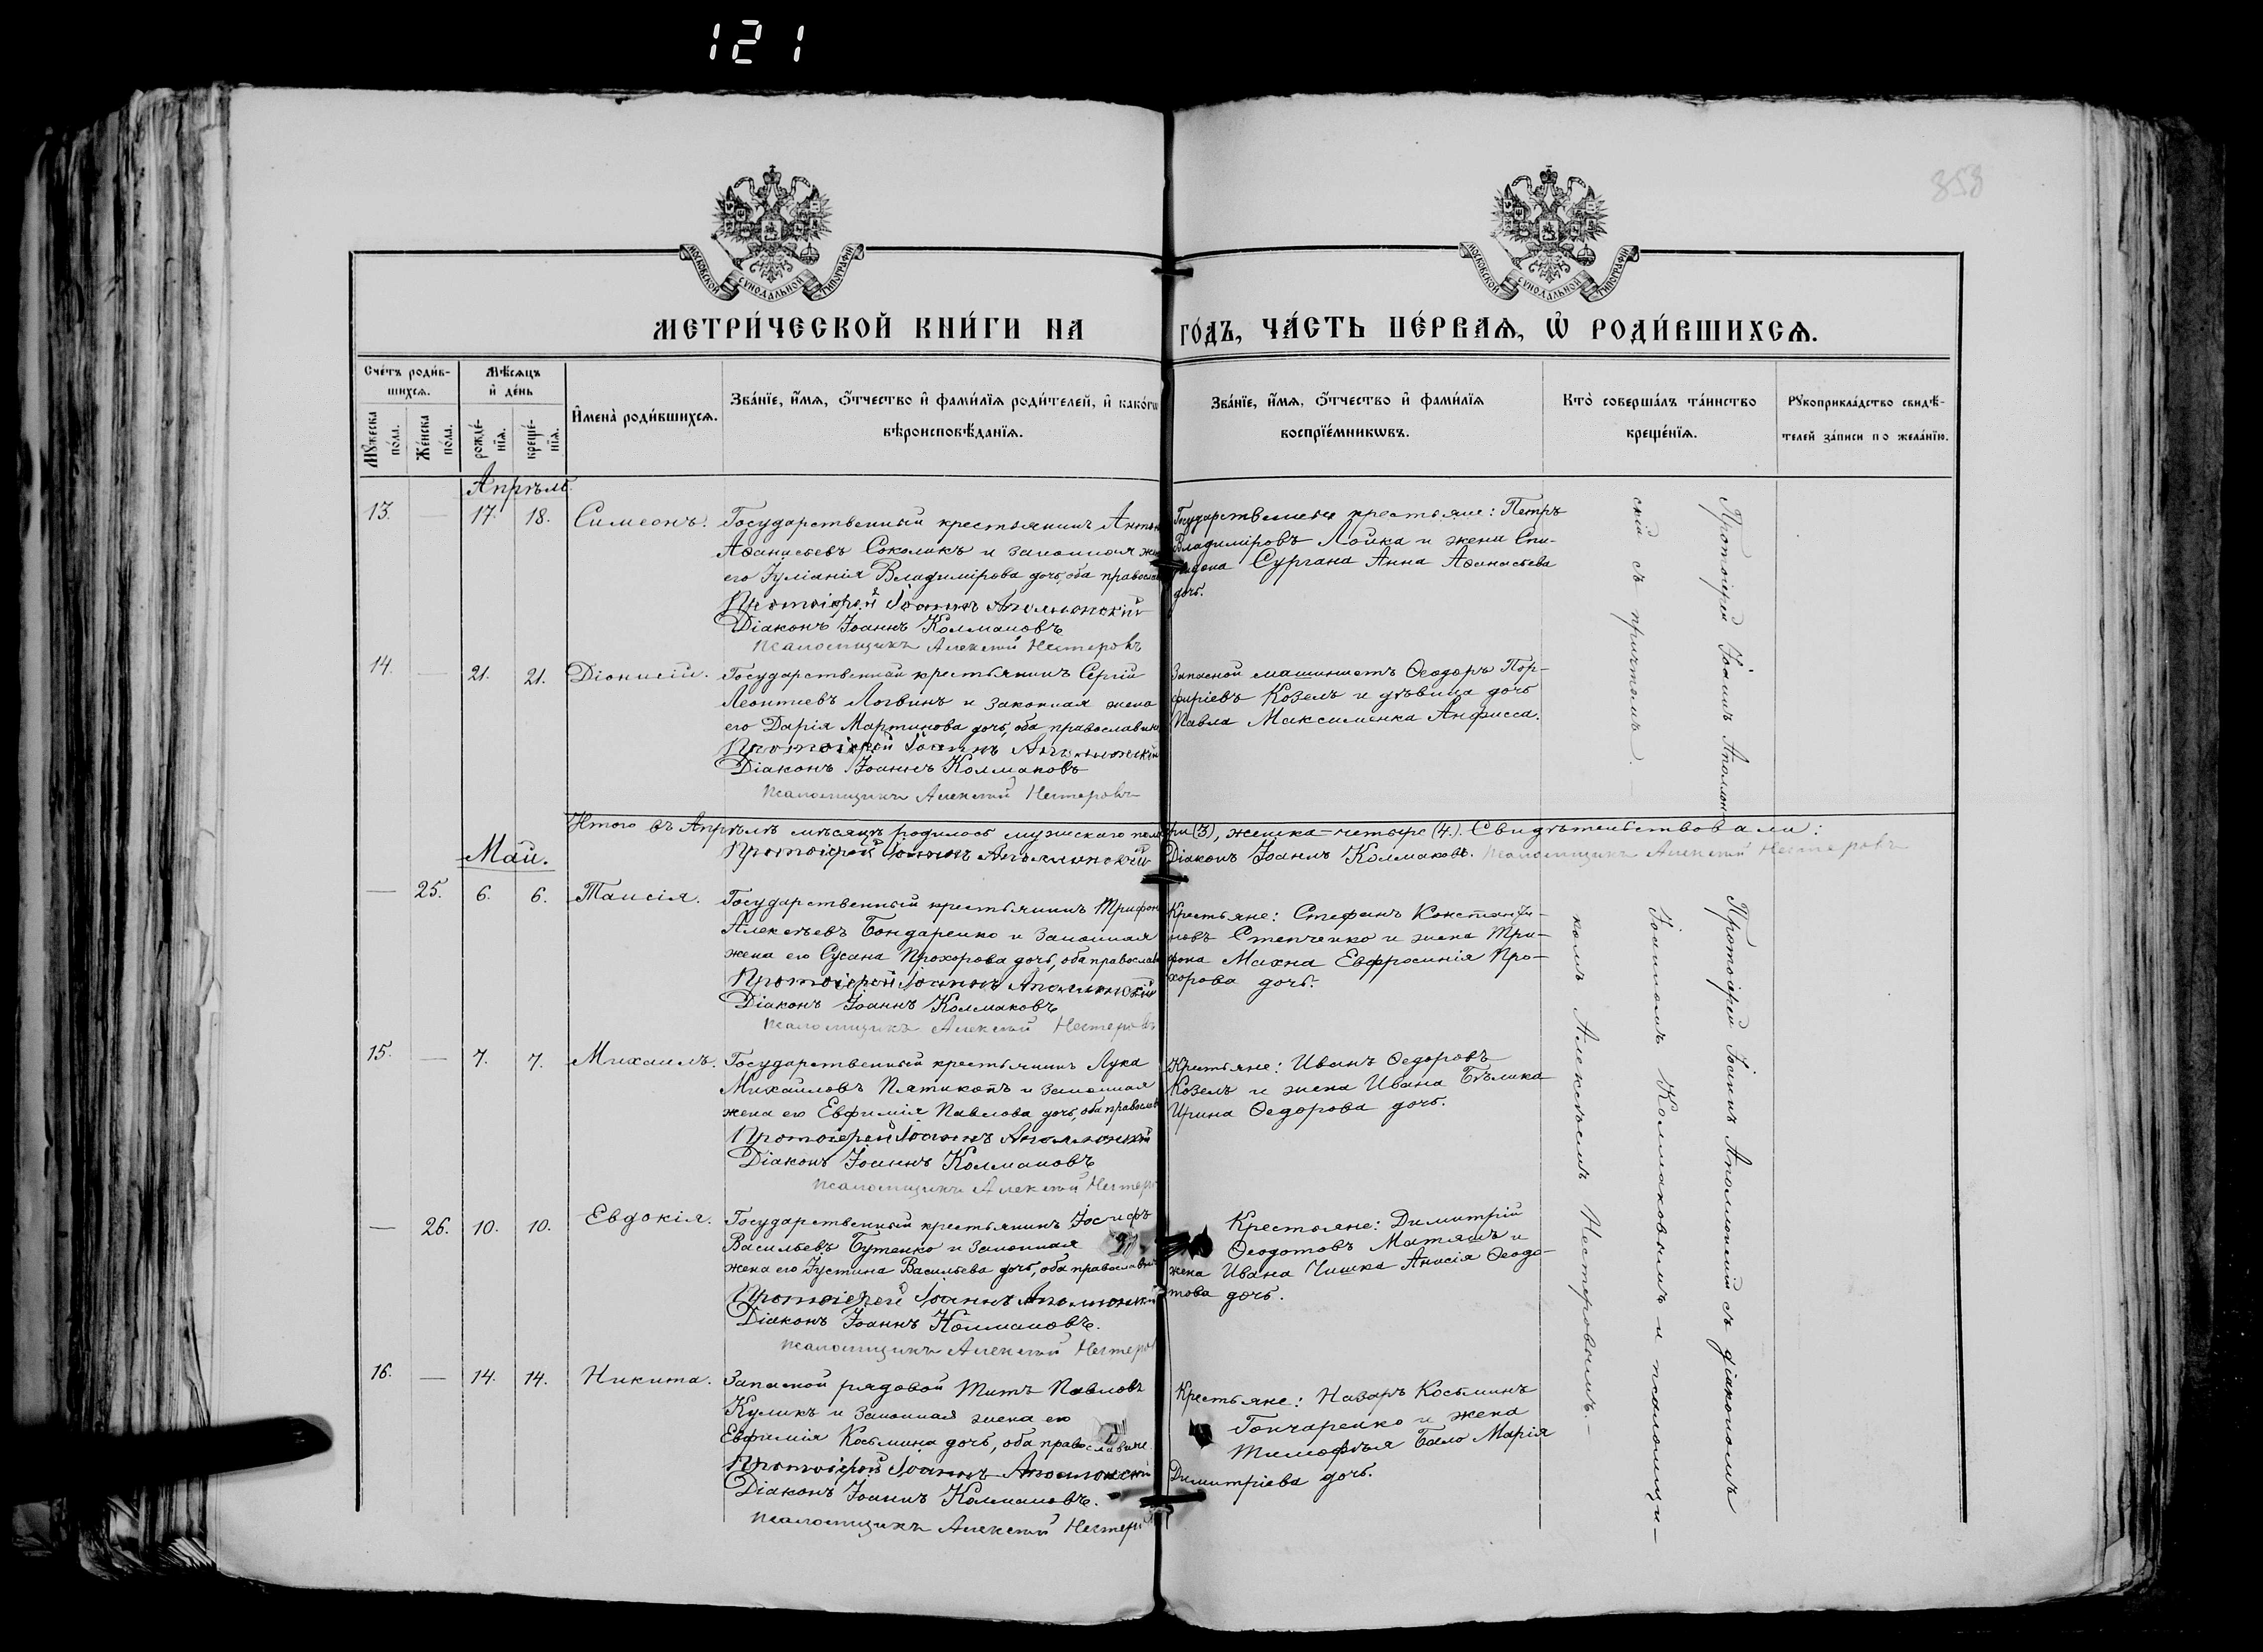 121
858
МОСКОВСКОЙ СѴНОДАЛЬНОЙ ТИПОГРАФІИ
МОСКОВСКОЙ СѴНОДАЛЬНОЙ ТИПОГРАФІИ
МЕТРИ́ЧЕСКОЙ КНИ́ГИ НА ГО́ДЪ, ЧА́СТЬ ПЕ́РВАЯ, Ѡ РОДИ́ВШИХСЯ.
Сче́тъ роди́в-
шихся.
Мꙋ́жеска
по́ла.
Же́нска
пола.
Мѣ́сяцъ
и҆ де́нь
рожде́-
нїя.
креще́-
нїя.
И҆мена̀ роди́вшихся.
Зва́нїе, и҆́мя, о҆́тчество и҆ фами́лїя роди́телей, и҆ како́гѡ
вѣроисповѣ́данїя.
Зва́нїе, и҆́мя, о҆́тчество и҆ фами́лїя
воспрїе́мникѡвъ.
Кто̀ соверша́лъ та́инство
креще́нїя.
Рꙋкоприкла́дство свидѣ́-
телей за́писи по жела́нїю.
Апрѣль.
13. — 17. 18. Симеонъ.
Государственный крестьянинъ Антон
Аѳанасьевъ Соколикъ и законная же
его Іуліанія Владимірова дочь, оба православ
Протоіерей Іоаннъ Аполлонскій
Діаконъ Іоаннъ Колмаковъ
Псаломщикъ Алексій Нестеровъ
Государственные крестьяне: Петръ
Владиміровъ Лойка и жена Спи-
ридона Сургана Анна Аѳанасьева
дочь.
Протоіерей Іоаннъ Аполлон
скій съ причтомъ. —
14. — 21. 21. Діонисій.
Государственный крестьянинъ Сергій
Леонтиевъ Логвинъ и законная жена
его Дарія Мартинова дочь, оба православные
Протоіерей Іоаннъ Аполлонскій
Діаконъ Іоаннъ Колмаковъ
Псаломщикъ Алексій Нестеровъ
Запасной машинистъ Ѳеодоръ Пор-
фиріевъ Козелъ и дѣвица дочь
Павла Максименка Анфисса.
Итого въ Апрѣлѣ мѣсяцѣ родилось мужскаго пола три (3), женска — четыре (4). Свидѣтельствовали:
Протоіерей Іоаннъ Аполлонскій Діаконъ Іоаннъ Колмаковъ. Псаломщикъ Алексій Нестеровъ
Май.
— 25. 6. 6. Таисія.
Государственный крестьянинъ Трифон
Алексѣевъ Бондаренко и законная
жена его Сусана Прохорова дочь, оба православн
Протоіерей Іоаннъ Аполлонскій
Діаконъ Іоаннъ Колмаковъ
Псаломщикъ Алексій Нестеровъ
Крестьяне: Стефанъ Константи-
новъ Степченко и жена Три-
фона Махна Евфросинія Про-
хорова дочь.
Протоіерей Іоаннъ Аполлонскій съ діакономъ
Іоанномъ Колмаковымъ и псаломщи-
комъ Алексѣемъ Нестеровымъ. —
15. — 7. 7. Михаилъ.
Государственный крестьянинъ Лука
Михайловъ Пятикопъ и законная
жена его Евфимія Павлова дочь, оба православ
Протоіерей Іоаннъ Аполлонскій
Діаконъ Іоаннъ Колмаковъ
Псаломщикъ Алексій Нестеро
Крестьяне: Иванъ Ѳедоровъ
Козелъ и жена Ивана Бѣлика
Ирина Ѳедорова дочь.
— 26. 10. 10. Евдокія.
Государственный крестьянинъ Іосифъ
Васильевъ Бутенко и законная
жена его Іустина Васильева дочь, оба православн
Протоіерей Іоаннъ Аполлонскій
Діаконъ Іоаннъ Колмаковъ.
Псаломщикъ Алексій Нестеров
Крестьяне: Димитрій
Ѳеодотовъ Матяшъ и
жена Ивана Чишка Анисія Ѳеодо-
това дочь.
16. — 14. 14. Никита.
Запасной рядовой Титъ Павловъ
Куликъ и законная жена его
Евфимія Косьмина дочь, оба православные.
Протоіерей Іоаннъ Аполлонскій
Діаконъ Іоаннъ Колмаковъ.
Псаломщикъ Алексій Нестеров
Крестьяне: Назаръ Косьминъ
Гончаренко и жена
Тимофѣя Бало Марія
Димитріева дочь.